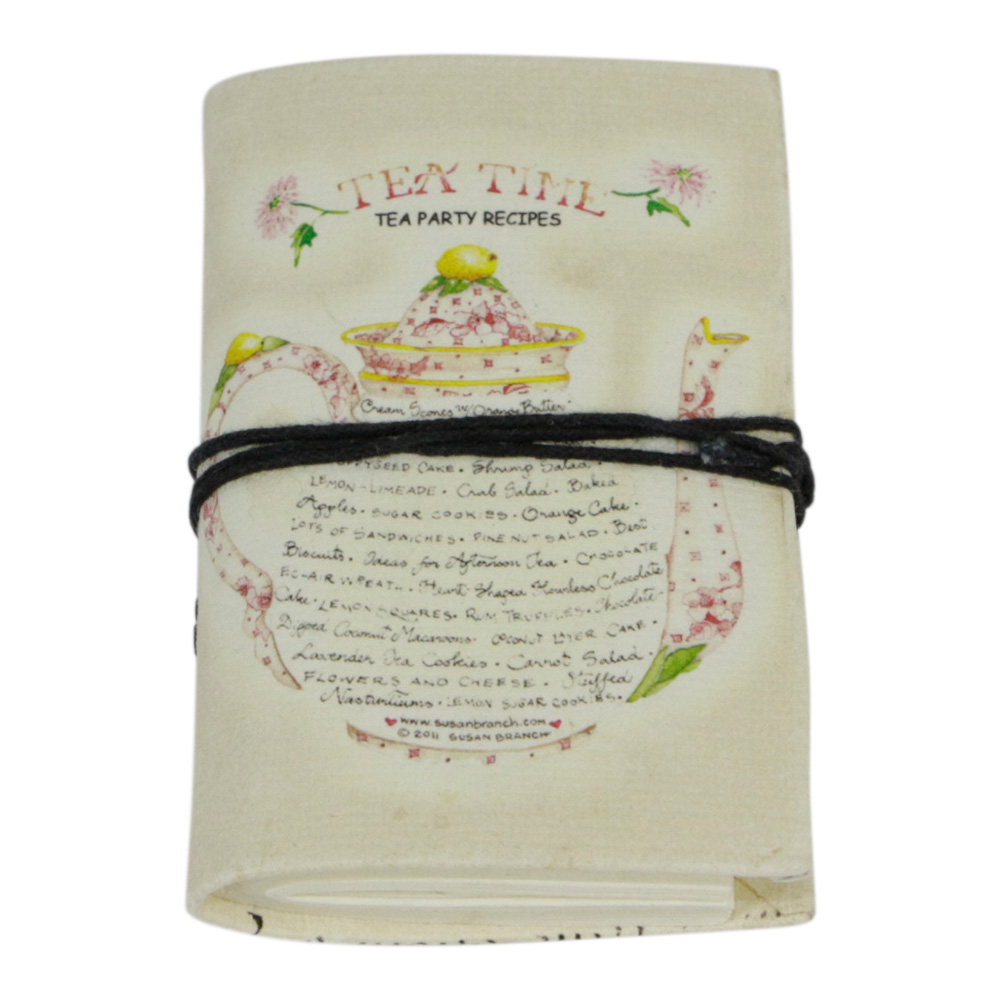 TEA TIME
TEA PARTY RECIPES
Cream Scones w/ Orange Butter
SEED CAKE • Shrimp Salad •
LEMON-LIMEADE • Crab Salad • Baked
Apples • SUGAR COOKIES • Orange Cake •
LOTS OF SANDWICHES • PINE NUT SALAD • Best
Biscuits • Ideas for Afternoon Tea • CHOCOLATE
ECLAIR WREATH • Heart-Shaped Flourless Chocolate
Cake • LEMON SQUARES • RUM TRUFFLES • Chocolate-
Dipped Coconut Macaroons • COCONUT LAYER CAKE •
Lavender Tea Cookies • Carrot Salad •
FLOWERS AND CHEESE • Stuffed
Nasturtiums • LEMON SUGAR COOKIES •
www.susanbranch.com
© 2011 SUSAN BRANCH